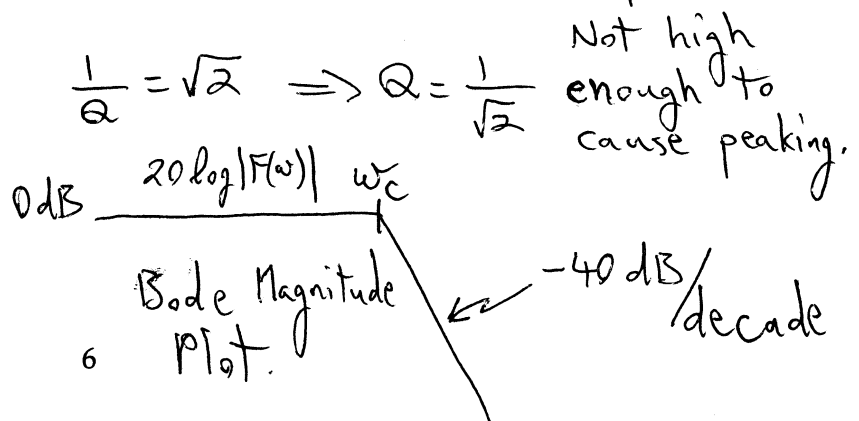 1/Q = √2 ⟹ Q = 1/√2
Not high
enough to
cause peaking.
0dB 20log|F(ω)| ωc
Bode Magnitude
Plot.
-40 dB/decade
6